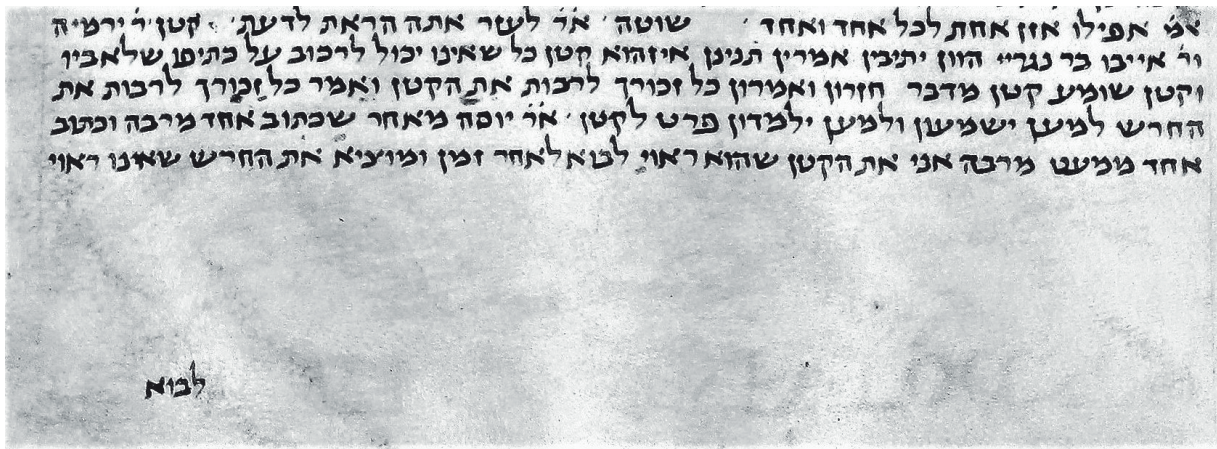 אמ' אפילו אזן אחת לכל אחד ואחד שוטה א"ר לעזר אתה הראת לדעת קטן ר' ירמיה
ור' אייבו בר נגריי הוון יתיבין אמרין תנינן איזהוא קטן כל שאינו יכול לרכוב על כתיפו שלאביו
וקטן שומע קטן מדבר חזרון ואמרון כל זכורך לרבות את הקטן ואמר כל זכורך לרבות את
החרש למען ישמעון ולמען ילמדון פרט לקטן א"ר יוסה מאחר שכתוב אחד מרבה וכתוב
אחד ממעט מרבה אני את הקטן שהוא ראוי לבוא לאחר זמן ומוציא את החרש שאינו ראוי
לבוא